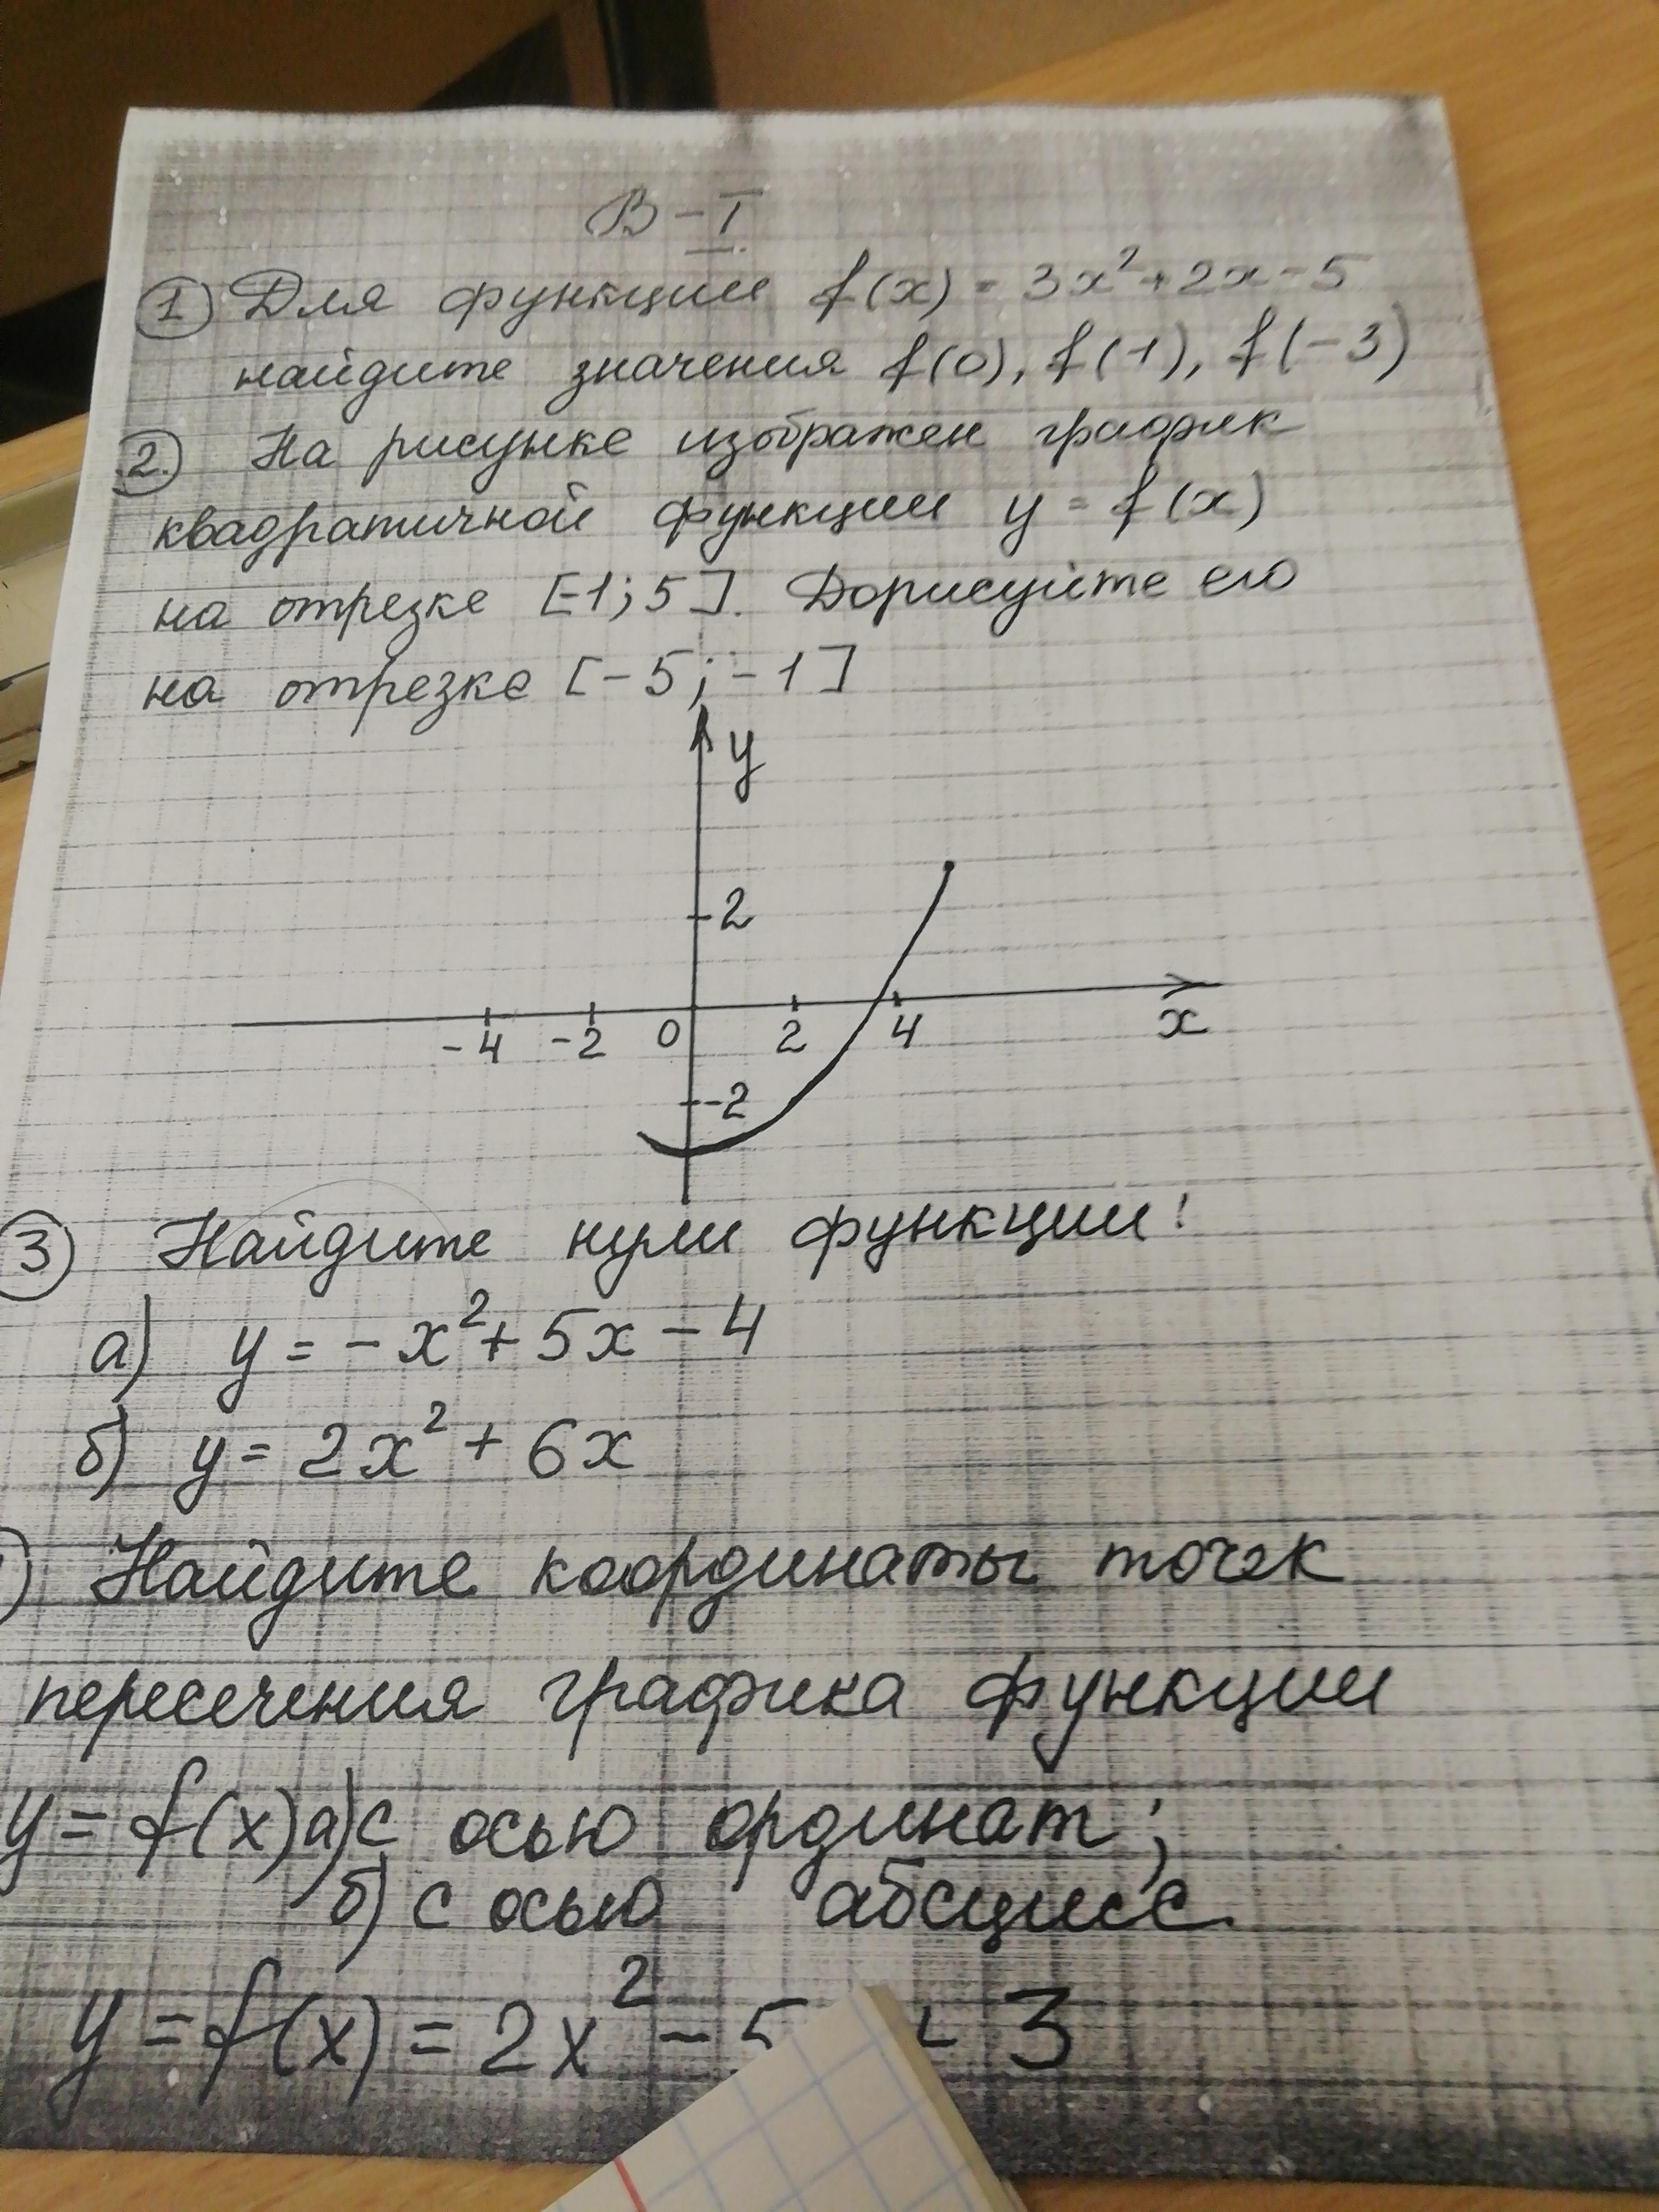 В-I.
1) Для функции f(x) = 3x²+2x-5
найдите значения f(0), f(1), f(-3)
2.) На рисунке изображен график
квадратичной функции y = f(x)
на отрезке [-1; 5]. Дорисуйте его
на отрезке [-5; -1]
y
2
-4 -2 0 2 4 x
-2
3) Найдите нули функции:
а) y = -x²+5x-4
б) y = 2x²+6x
) Найдите координаты точек
пересечения графика функции
y = f(x) а) с осью ординат;
б) с осью абсцисс.
y = f(x) = 2x² - 5 3